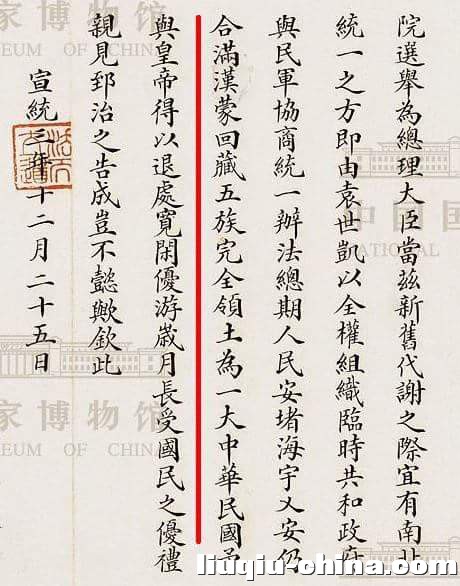 院選舉為總理大臣當茲新舊代謝之際宜有南北
統一之方即由袁世凱以全權組織臨時共和政府
與民軍協商統一辦法總期人民安堵海宇乂安仍
合滿漢蒙回藏五族完全領土為一大中華民國予
與皇帝得以退處寬閑優游歲月長受國民之優禮
親見郅治之告成豈不懿歟欽此
宣統三年十二月二十五日
法天立道
家博物馆
EUM OF CHINA
中国国
NATIONAL
家博物馆
EUM OF CHINA
liuqiu-china.com